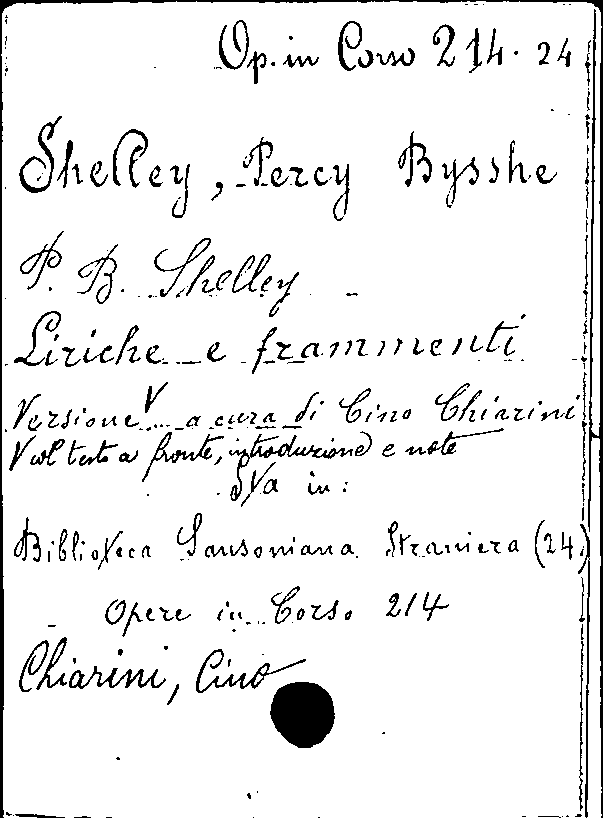 Op. in Corso 214. 24
Shelley, Percy Bysshe
P. B. Shelley
Liriche e frammenti
Versione V a cura di Cino Chiarini
V col testo a fronte, introduzione e note
Sta in:
Biblioteca Sansoniana Straniera (24)
Opere in Corso 214
Chiarini, Cino